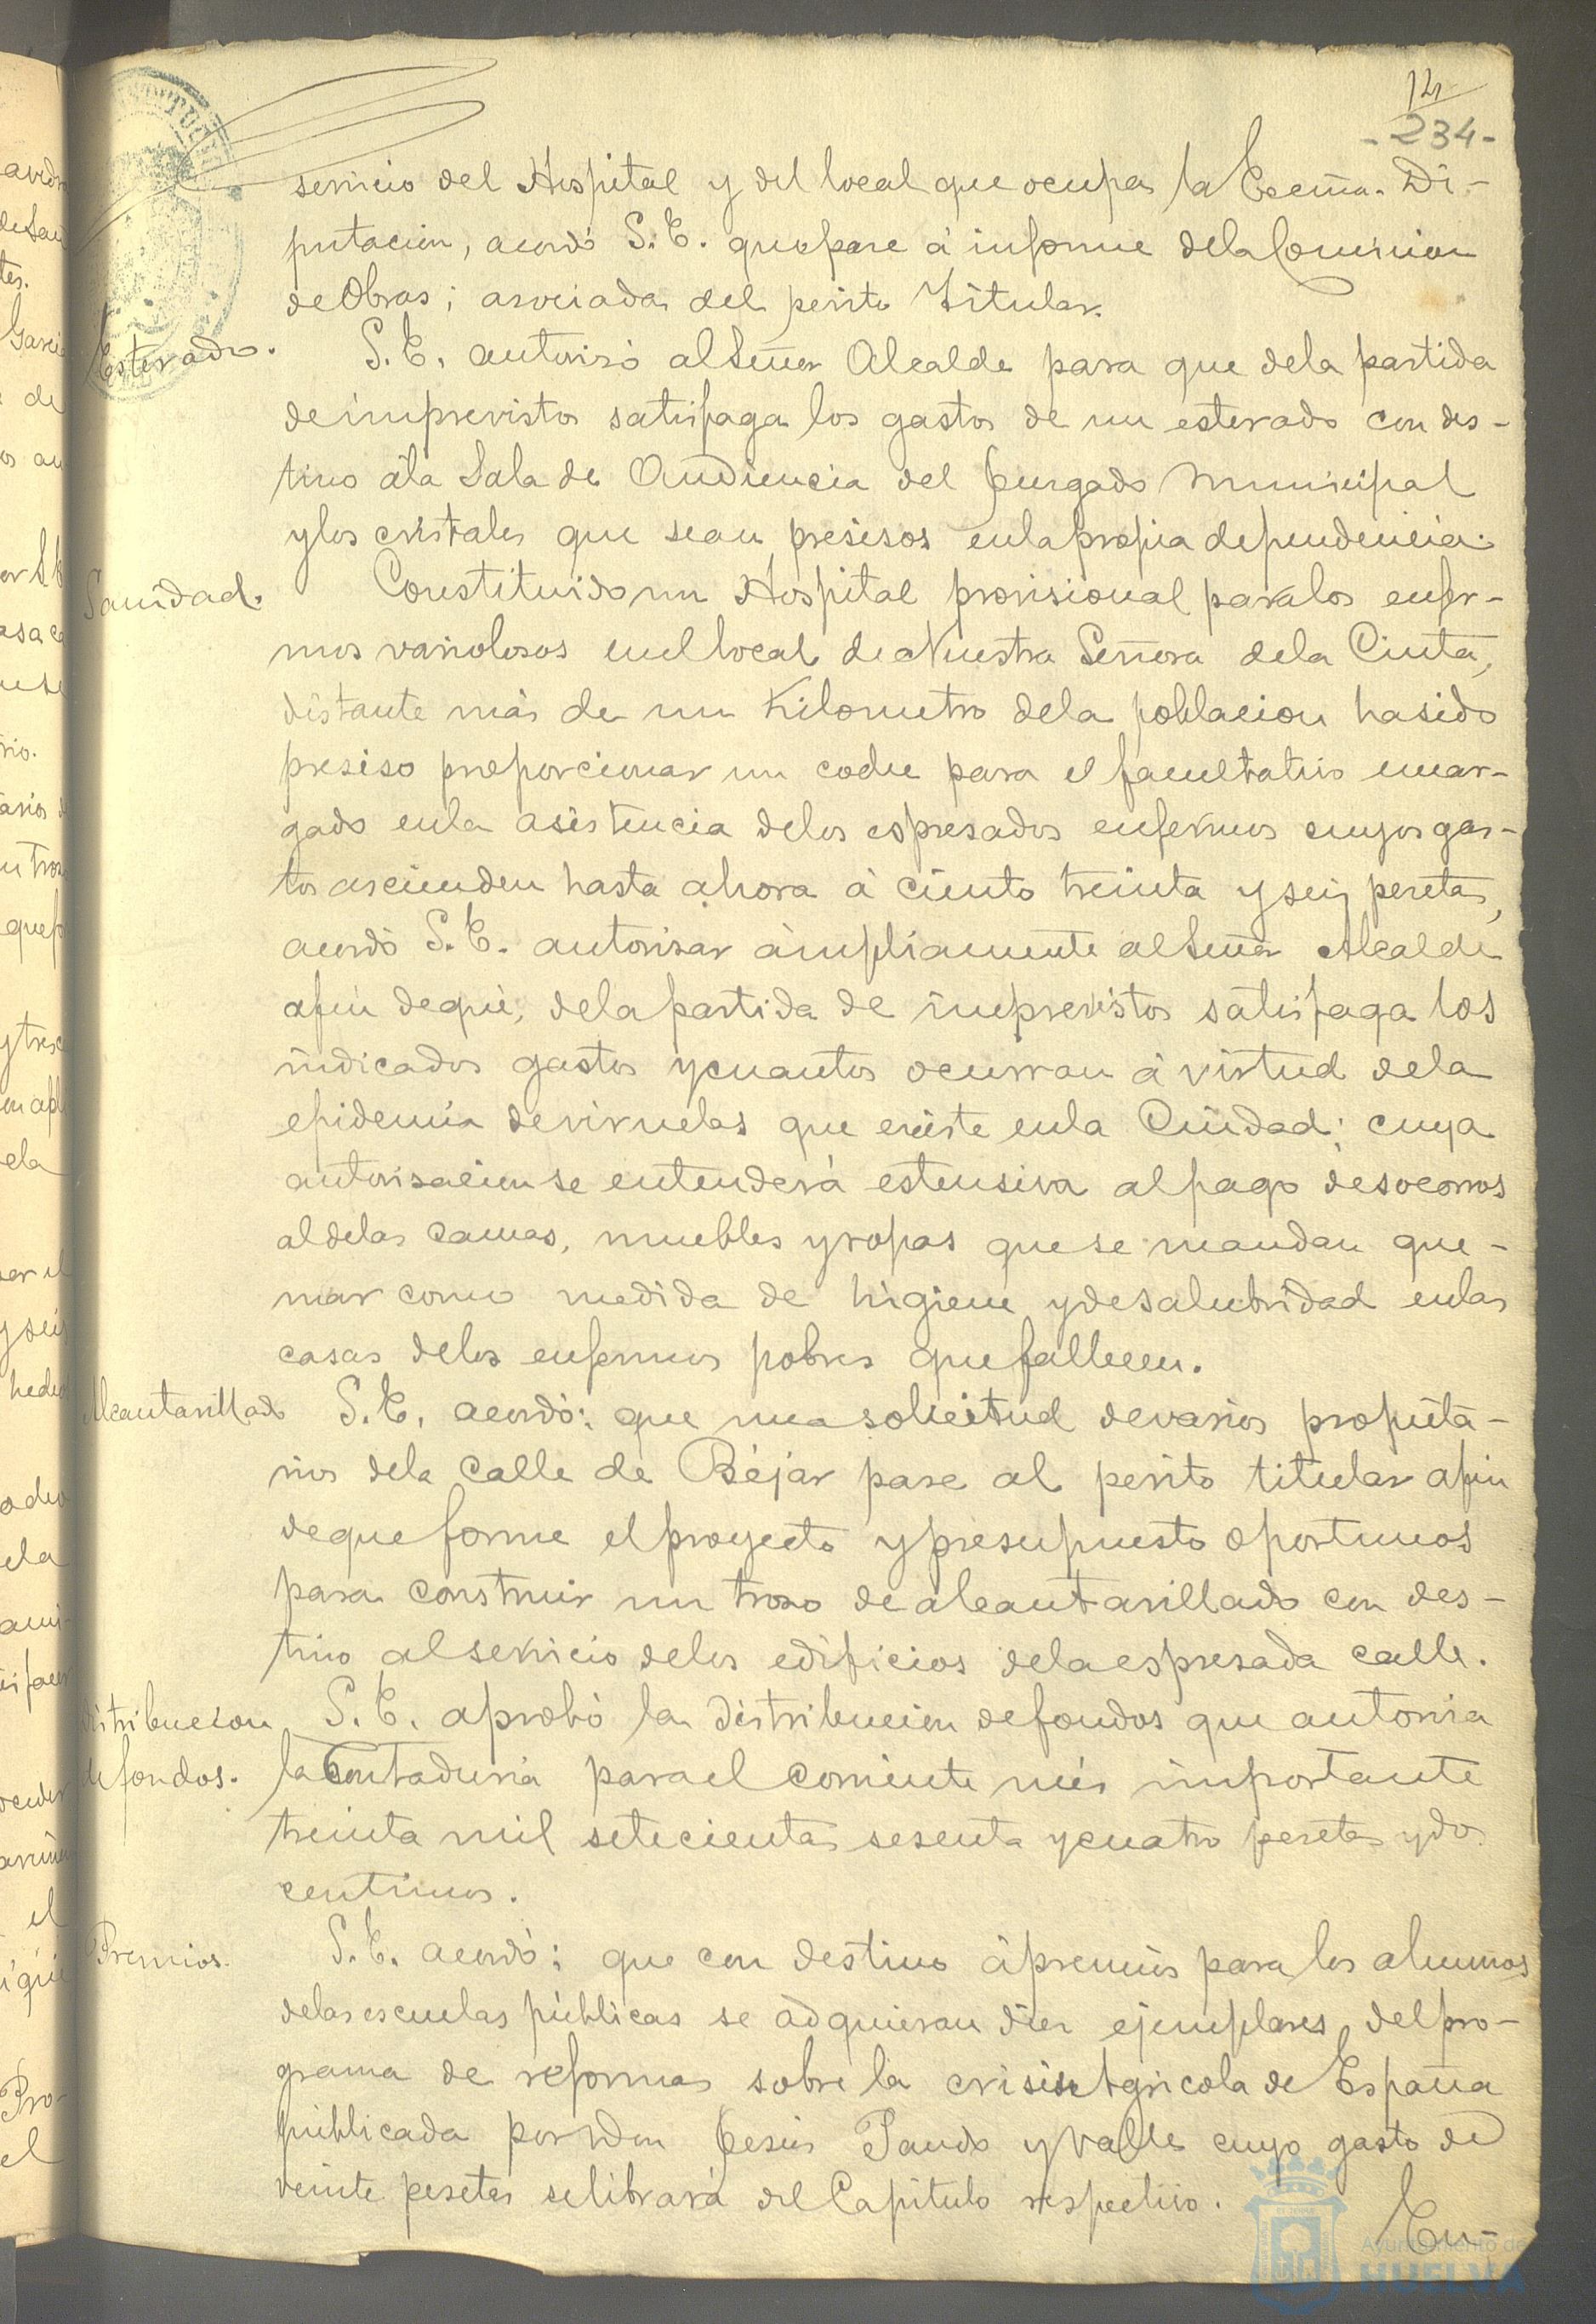 12
-234-
servicio del Hospital y del local que ocupa la Excma. Di-
putacion, acordó S.E. que pase á informe de la Comision
de Obras; asociada del perito Titular.
Esterado.
S.E. autorisó al Señor Alcalde para que de la partida
de imprevistos satisfaga los gastos de un esterado con des-
tino á la Sala de Audiencia del Jurgado Municipal
y los cristales que sean presisos en la propia dependencia.
Sanidad.
Constituido un Hospital provisional para los enfer-
mos variolosos en el local de Nuestra Señora de la Cinta,
distante más de un Kilometro de la poblacion ha sido
presiso proporcionar un coche para el facultativo encar-
gado en la asistencia de los espresados enfermos cuyos gas-
tos ascienden hasta ahora á ciento treinta y seis pesetas,
acordó S.E. autorisar ámpliamente al Señor Alcalde
afin de que, de la partida de imprevistos satisfaga los
indicados gastos y cuantos ocurran á virtud de la
epidemia de viruelas que existe en la Ciudad; cuya
autorisacion se entenderá estensiva al pago de socorros
al de las camas, muebles y ropas que se mandan que-
mar como medida de higiene y de salubridad en las
casas de los enfermos pobres que fallecen.
Alcantarillado
S.E. acordó: que una solicitud de varios propieta-
rios de la calle de Béjar pase al perito titular afin
de que forme el proyecto y presupuesto oportunos
para construir un troso de alcantarillado con des-
tino al servicio de los edificios de la espresada calle.
Distribucion
de fondos.
S.E. aprobó la distribucion de fondos que autorisa
la Contaduria para el corriente mes importante
treinta mil setecientas sesenta y cuatro pesetas y dos
centimos.
Premios.
S.E. acordó: que con destino á premios para los alumnos
de las escuelas públicas se adquieran diez ejemplares del pro-
grama de reformas sobre la crisis Agricola de España
publicada por Don Jesús Pando y Valle cuyo gasto de
veinte pesetas se librará del Capítulo respectivo.
En-
Ayuntamiento de
HUELVA